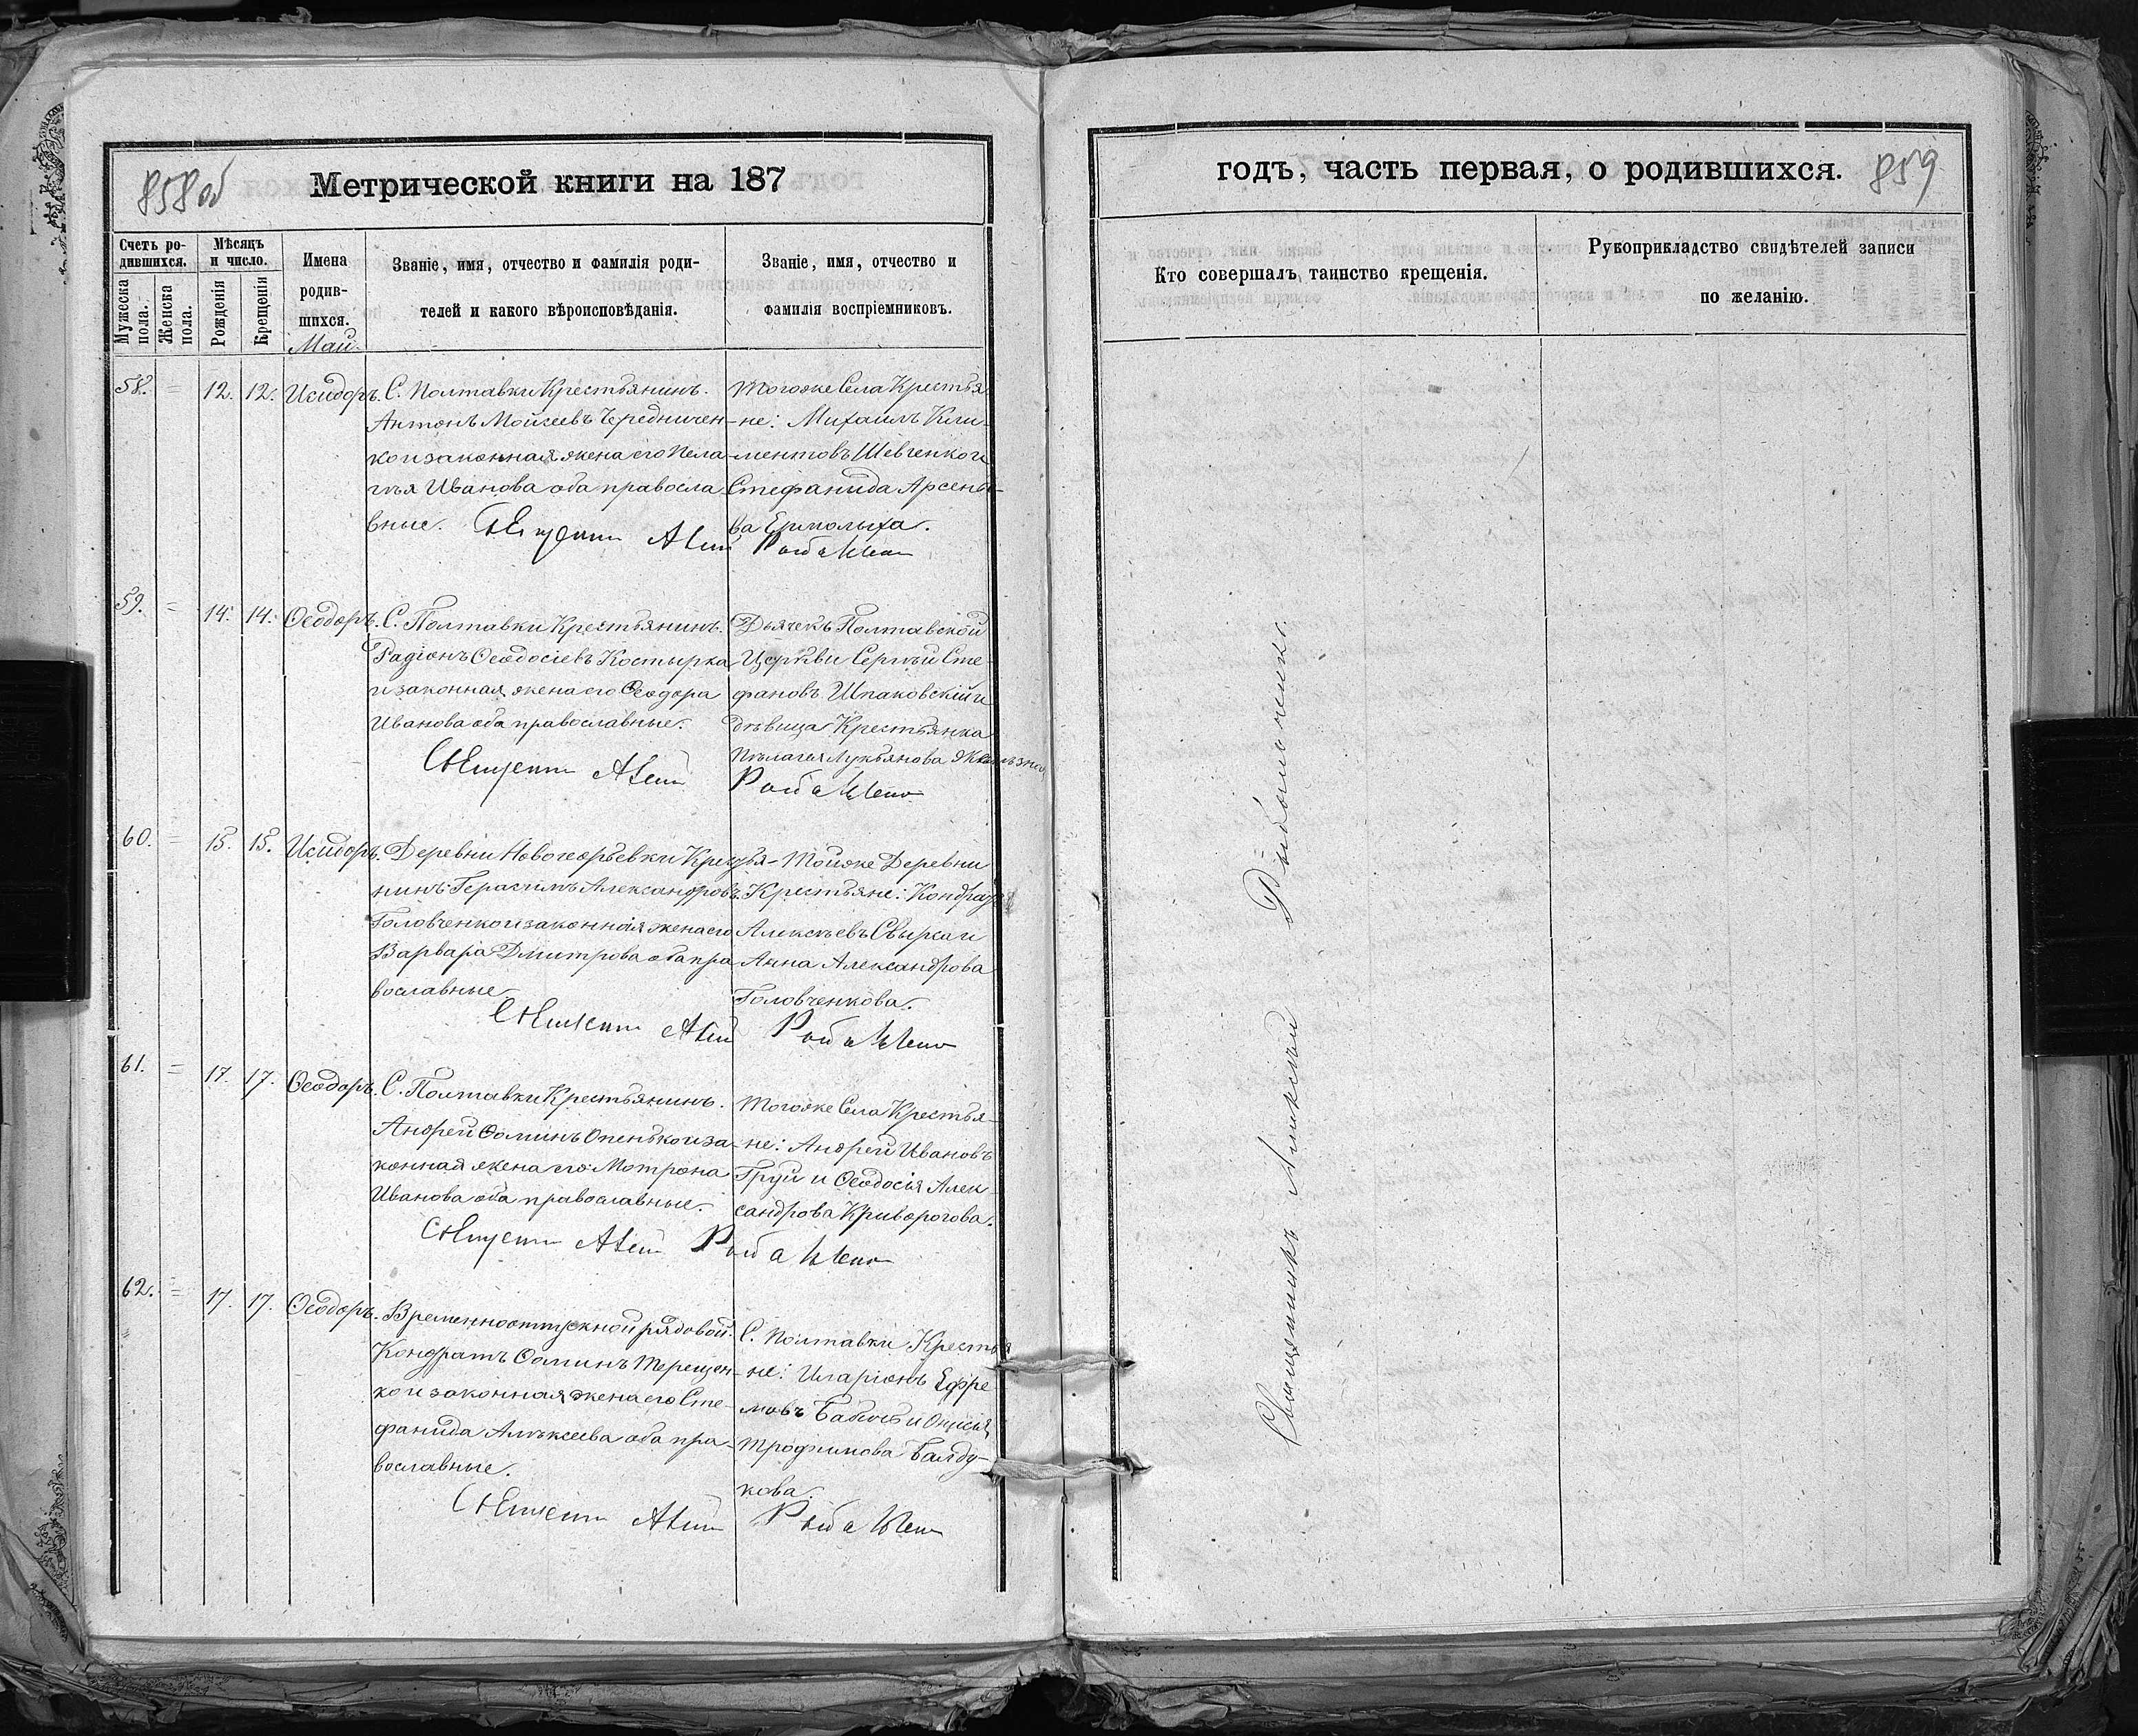 858 об
Метрической книги на 187
Счетъ ро-
дившихся.
Мужеска пола.
Женска пола.
Мѣсяцъ
и число.
Рожденія
Крещенія
Имена
родив-
шихся.
Званіе, имя, отчество и фамилія роди-
телей и какого вѣроисповѣданія.
Званіе, имя, отчество и
фамилія воспріемниковъ.
Май.
58. = 12. 12. Исидоръ. С. Полтавки Крестьянинъ.
Антонъ Мойсеевъ Чередничен-
ко и законная жена его Пела-
гѣя Иванова оба правосла-
вные.
Тогоже Села Крестья-
не: Михаилъ Кли-
ментовъ Шевченко и
Стефанида Арсенье-
ва
59. = 14. 14. Ѳеодоръ. С. Полтавки Крестьянинъ.
Радіонъ Ѳеодосіевъ Костырка
и законная жена его Ѳеодора
Иванова оба православные.
Дьячекъ Полтавской
Церкви Сергѣй Сте-
фановъ Шпаковскій и
дѣвица Крестьянка
Пелагея Лукьянова
60. = 15. 15. Исидоръ. Деревни Новогеоргьевки Крестья-
нинъ: Герасимъ Александровъ
Головченко и законная жена его
Варвара Дмитрова оба пра-
вославные.
Тойже Деревни
Крестьяне: Кондратъ
Алексѣевъ и
Анна Александрова
Головченкова.
61. = 17. 17. Ѳеодоръ. С. Полтавки Крестьянинъ.
Андрей Ѳоминъ Опенько и за-
конная жена его Мотрона
Иванова оба православные.
Тогоже Села Крестья-
не: Андрей Ивановъ
Груй и Ѳеодосія Алек-
сандрова Криворогова.
62. = 17. 17. Ѳеодоръ. Временноотпускной рядовой.
Кондратъ Ѳоминъ Терещен-
ко и законная жена его Сте-
фанида Алѣксеева оба пра-
вославные.
С. Полтавки Крестья-
не: Иларіонъ Ефре-
мовъ и
Трофимова Балду-
кова.
годъ, часть первая, о родившихся.
859
Кто совершалъ таинство крещенія.
Рукоприкладство свидѣтелей записи
по желанію.
Священникъ Алексѣй